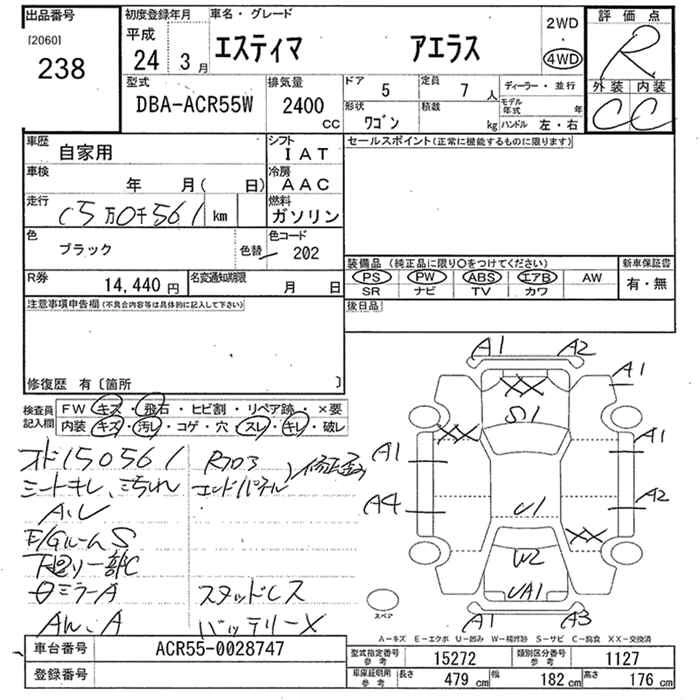 出品番号 [2060] 238
初度登録年月 平成 24年 3月
車名・グレード エスティマ アエラス
2WD 4WD
評価点 R
外装 内装
C C
型式 DBA-ACR55W
排気量 2400 CC
ドア 5 定員 7人
形状 ワゴン 積載 kg
ディーラー・並行
モデル年式 年
ハンドル 左・右
車歴 自家用
シフト IAT
車検 年 月( 日)
冷房 AAC
走行 15万0千561 km
燃料 ガソリン
色 ブラック 色替
色コード 202
R券 14,440円
名変通知期限 月 日
セールスポイント(正常に機能するものに限ります)
装備品 (純正品に限り○をつけてください)
PS PW ABS エアB AW
SR ナビ TV カワ
新車保証書 有・無
後日品
注意事項申告欄(不良合内容等は具体的に記入して下さい)
修復歴 有〔箇所 〕
検査員記入欄
FW キズ・飛石・ヒビ割・リペア跡・×要
内装 キズ・汚レ・コゲ・穴・スレ・キレ・破レ
オド150561 R703
シートキレ、 エンドパネル
E/GルームS
下廻り一部C
スタッドレス
AW、A バッテリーX
A1 A2
XX A1
S1
XX
A1 A1
A4 U1 A2
XX
W2
UA1
A1 A3
スペア
A-キズ E-エクボ U-凹み W-補修跡 S-サビ C-腐食 XX-交換済
車台番号 ACR55-0028747
登録番号
型式指定番号 参考 15272 類別区分番号 参考 1127
車庫証明用 参考 長さ 479 cm 幅 182 cm 高さ 176 cm